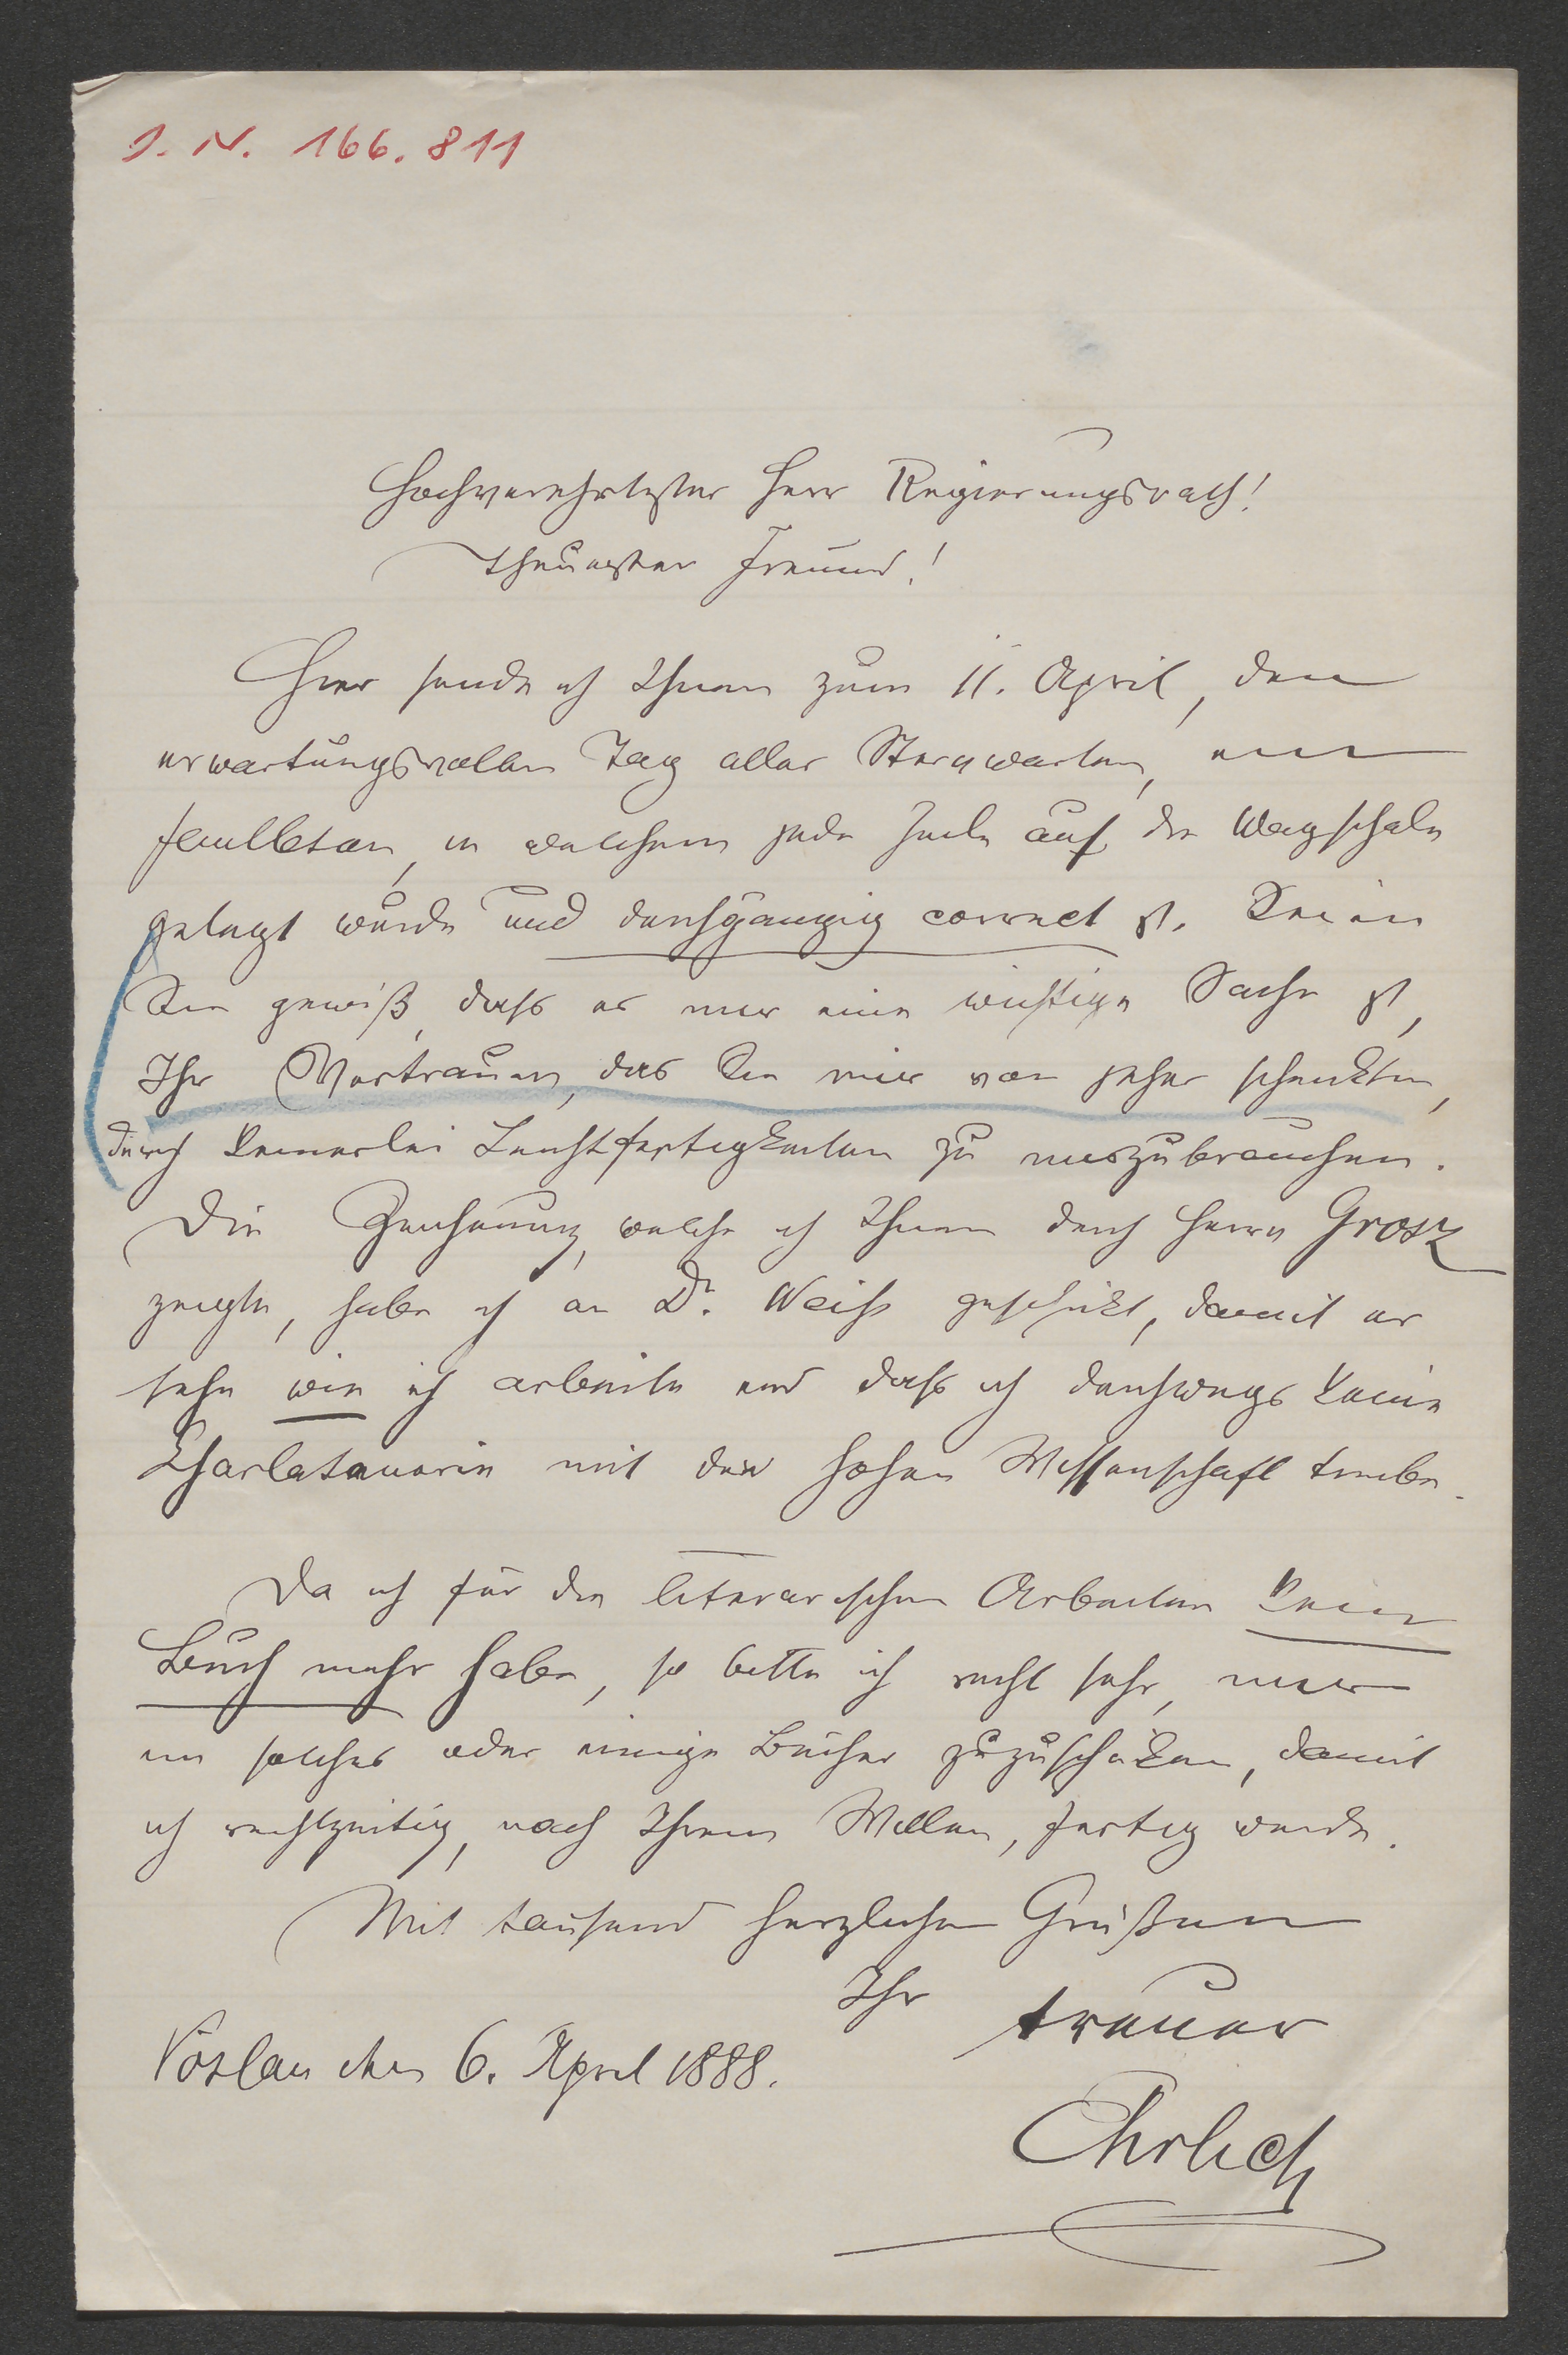 J. N. 166.811
Hochverehrtester Herr Regierungsrath!
Theuerster Freund!
Hier sende ich Ihnen zum 11. April, dem
erwartungsvollen Tag aller Sternwarten, ein
Feuilleton, in welchem jede Zeile auf die Wagschale
gelegt wurde und durchgängig correct ist. Seien
Sie gewiß, dass es mir eine wichtige Sache ist,
Ihr Vertrauen, das Sie mir von jeher schenkten,
durch keinerlei Leichtfertigkeiten zu
Die Zeichnung, welche ich Ihnen durch Herrn Grosz
zeigte, habe ich an Dr. Weiss geschikt, damit er
sehe wie ich arbeite und dass ich durchwegs keine
Charlatanerie mit der hohen Wissenschaft treibe.
Da ich für die literarischen Arbeiten kein
Buch mehr habe, so bitte ich recht sehr, mir
ein solches oder einige Bücher zuzuschiken, damit
ich rechtzeitig, nach Ihrem Willen, fertig werde.
Mit tausend herzlichen Grüßen
Ihr treuer
Vöslau den 6. April 1888.
Ehrlich